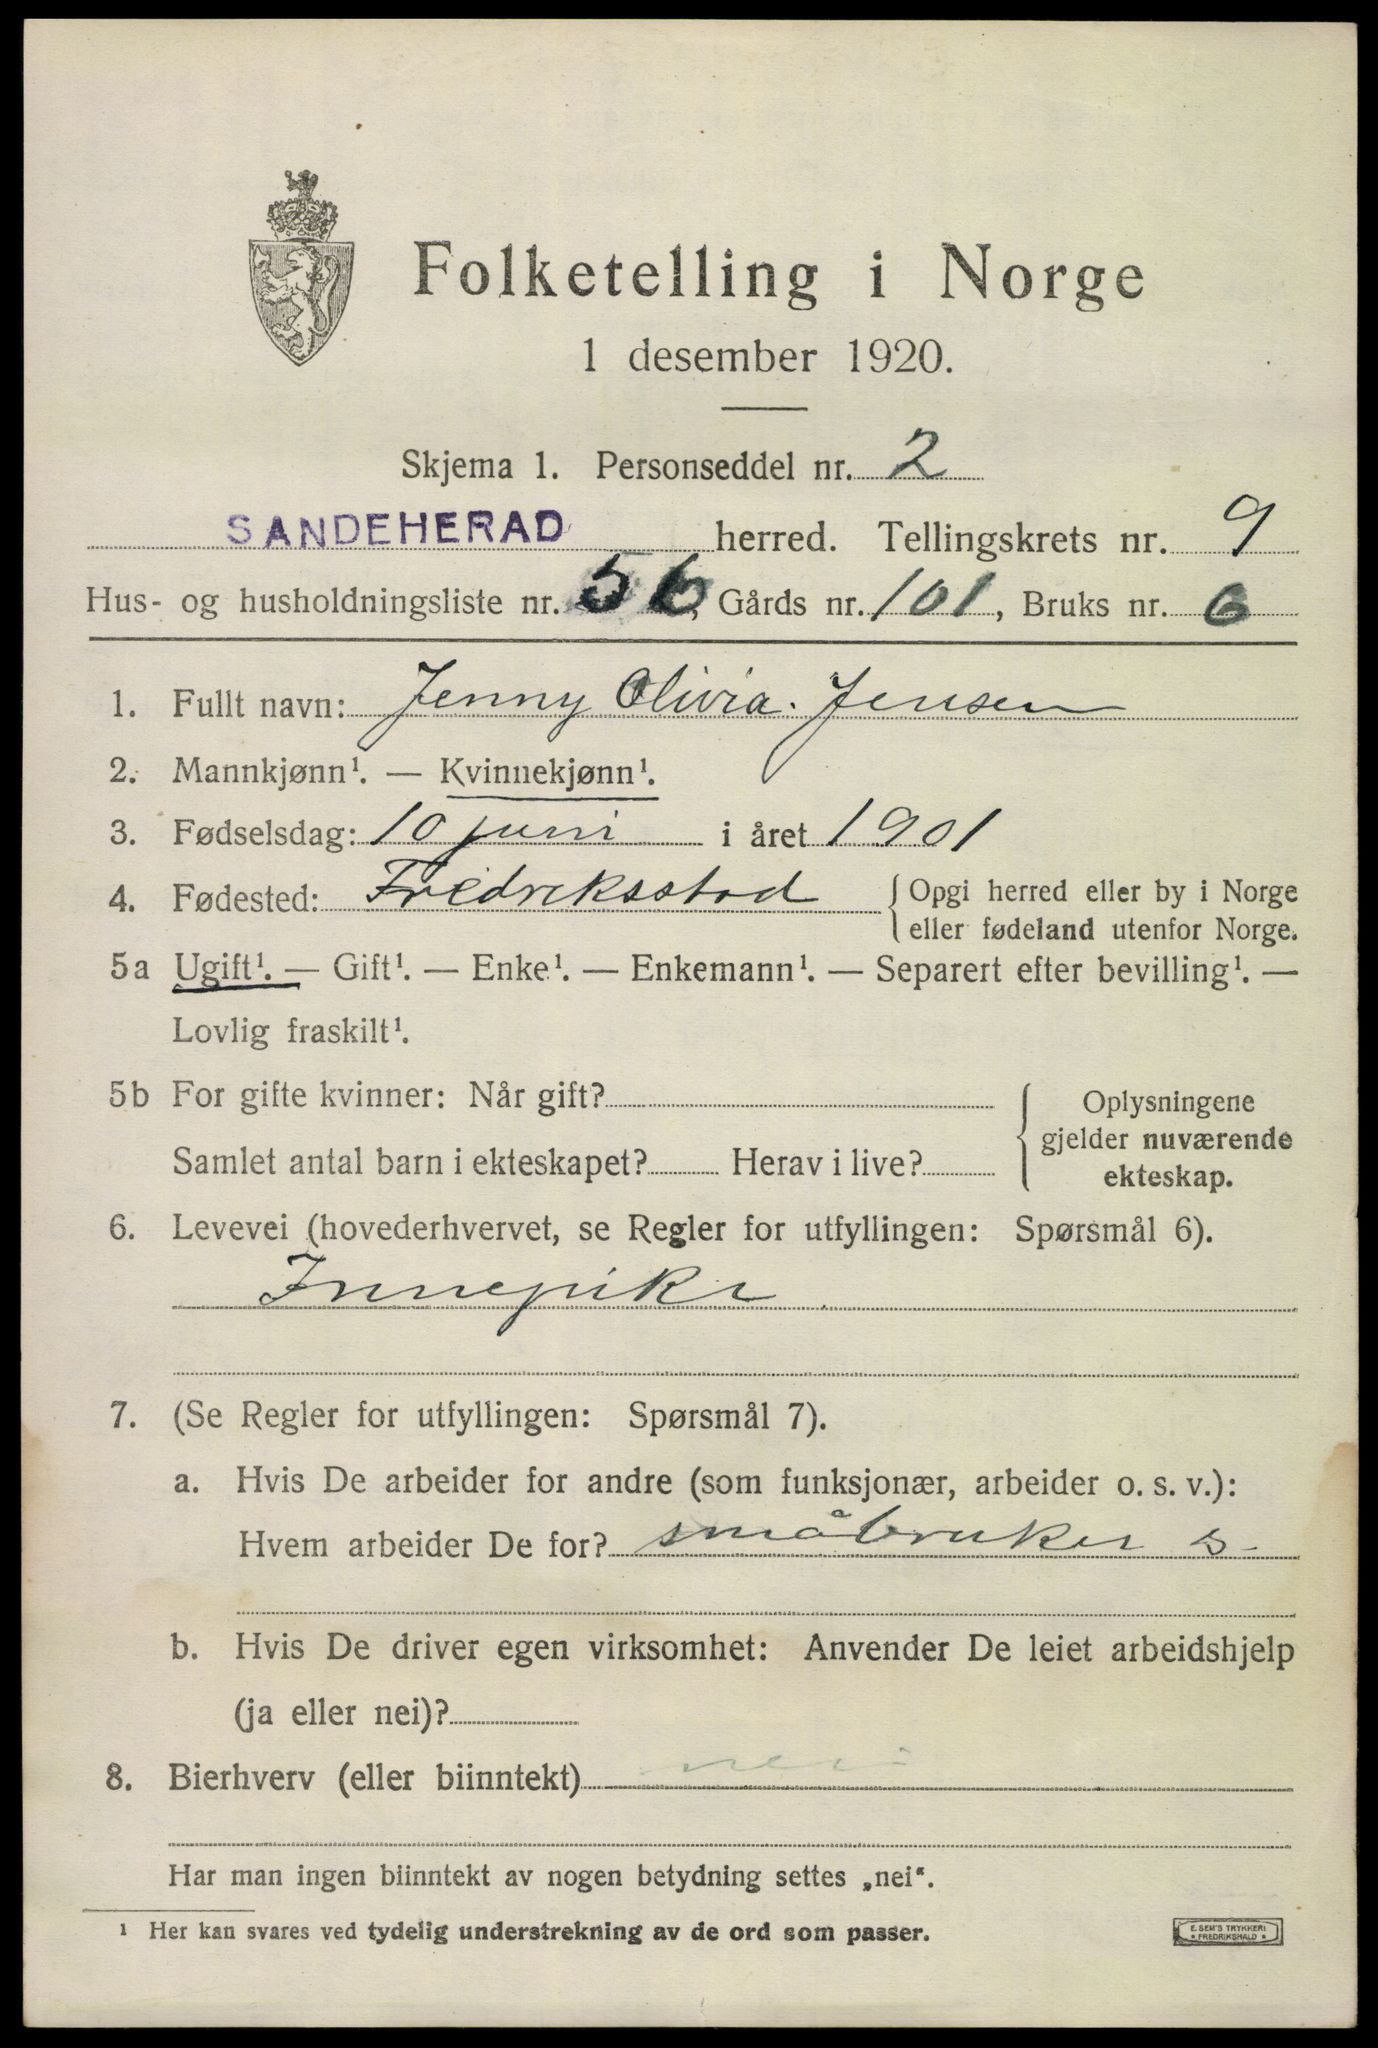 Folketelling i Norge
1 desember 1920.
Skjema 1. Personseddel nr. 2
SANDEHERAD herred. Tellingskrets nr. 9
Hus- og husholdningsliste nr. 56, Gårds nr. 101, Bruks nr. 6
1. Fullt navn: Jenny Olivia. Jensen
2. Mannkjønn¹. — Kvinnekjønn¹.
3. Fødselsdag: 10 juni i året 1901
4. Fødested: Fredriksstad { Opgi herred eller by i Norge
eller fødeland utenfor Norge.
5a Ugift¹. — Gift¹. — Enke¹. — Enkemann¹. — Separert efter bevilling¹. —
Lovlig fraskilt¹.
5b For gifte kvinner: Når gift?
Samlet antal barn i ekteskapet? Herav i live?
{ Oplysningene
gjelder nuværende
ekteskap.
6. Levevei (hovederhvervet, se Regler for utfyllingen: Spørsmål 6).
Innepike
7. (Se Regler for utfyllingen: Spørsmål 7).
a. Hvis De arbeider for andre (som funksjonær, arbeider o. s. v.):
Hvem arbeider De for? småbruker s-
b. Hvis De driver egen virksomhet: Anvender De leiet arbeidshjelp
(ja eller nei)?
8. Bierhverv (eller biinntekt) nei
Har man ingen biinntekt av nogen betydning settes „nei“.
¹ Her kan svares ved tydelig understrekning av de ord som passer.
E. SEM'S TRYKKERI
* FREDRIKSHALD *